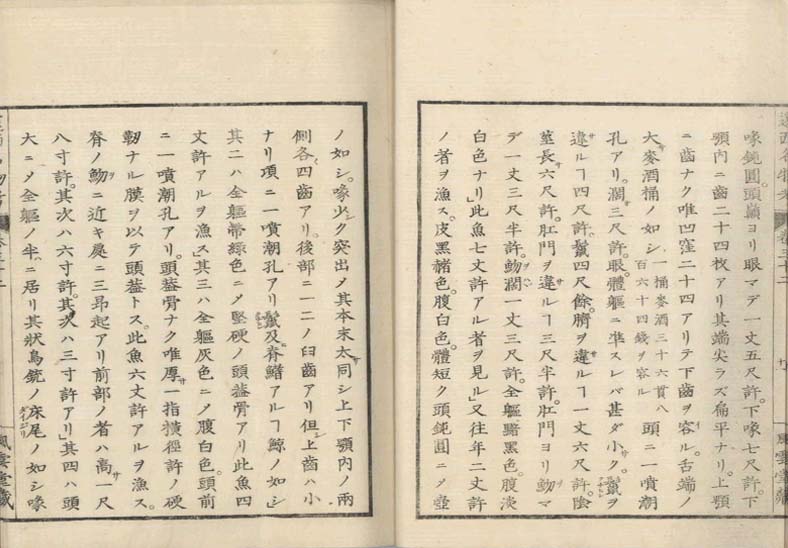 喙鈍圓。頭顚ヨリ眼マデ一丈五尺許。下喙七尺許。下
顎内ニ齒二十四枚アリ其端尖ラズ扁平ナリ。上顎
ニ齒ナク唯凹窪二十四アリテ下齒ヲ容ル。舌端ノ
大サ麥酒桶ノ如シ一桶麥酒三十六貫八百六十四錢ヲ容ル頭ニ一噴潮
孔アリ。濶サ三尺許。眼體軀ニ準スレバ甚ダ小ク。鬣ヲ
違ルヿ四尺許。鬣四尺餘。臍ヲ違ルヿ一丈六尺許陰
莖長サ六尺許。肛門ヲ違ルヿ三尺半許。肛門ヨリ魩マ
デ一丈三尺半許。魩濶サ一丈三尺許。全軀黯黑色。腹淡
白色ナリ」此魚七丈許アル者ヲ見ル」又往年二丈許
者ヲ漁ス。皮黑赭色。腹白色。體短ク頭鈍圓ニメ壺
ノ如シ。喙少ク突出メ其本末太サ同シ上下顎内ノ兩
側各〻四齒アリ。後部ニ一二ノ臼齒アリ但シ上齒ハ小
ナリ項ニ一噴潮孔アリ鬣及ヒ脊鰭アルヿ鯨ノ如シ
其二ハ全軀帶綠色ニメ堅硬ノ頭蓋骨アリ此魚四
丈許アルヲ漁ス」其三ハ全軀灰色ニメ腹白色。頭前
ニ一噴潮孔アリ。頭蓋骨ナク唯厚サ一指横徑許ノ硬
靭ナル膜ヲ以テ頭蓋トス。此魚六丈許アルヲ漁ス。
脊ノ魩ニ近キ處ニ三昂起アリ前部ノ者ハ高サ一尺
八寸許。其次ハ六寸許。其次ハ三寸許アリ」其四ハ頭
大ニメ全軀ノ半ニ居リ其状鳥銃ノ床尾ダイジリノ如シ喙
風雲堂藏
風雲堂藏